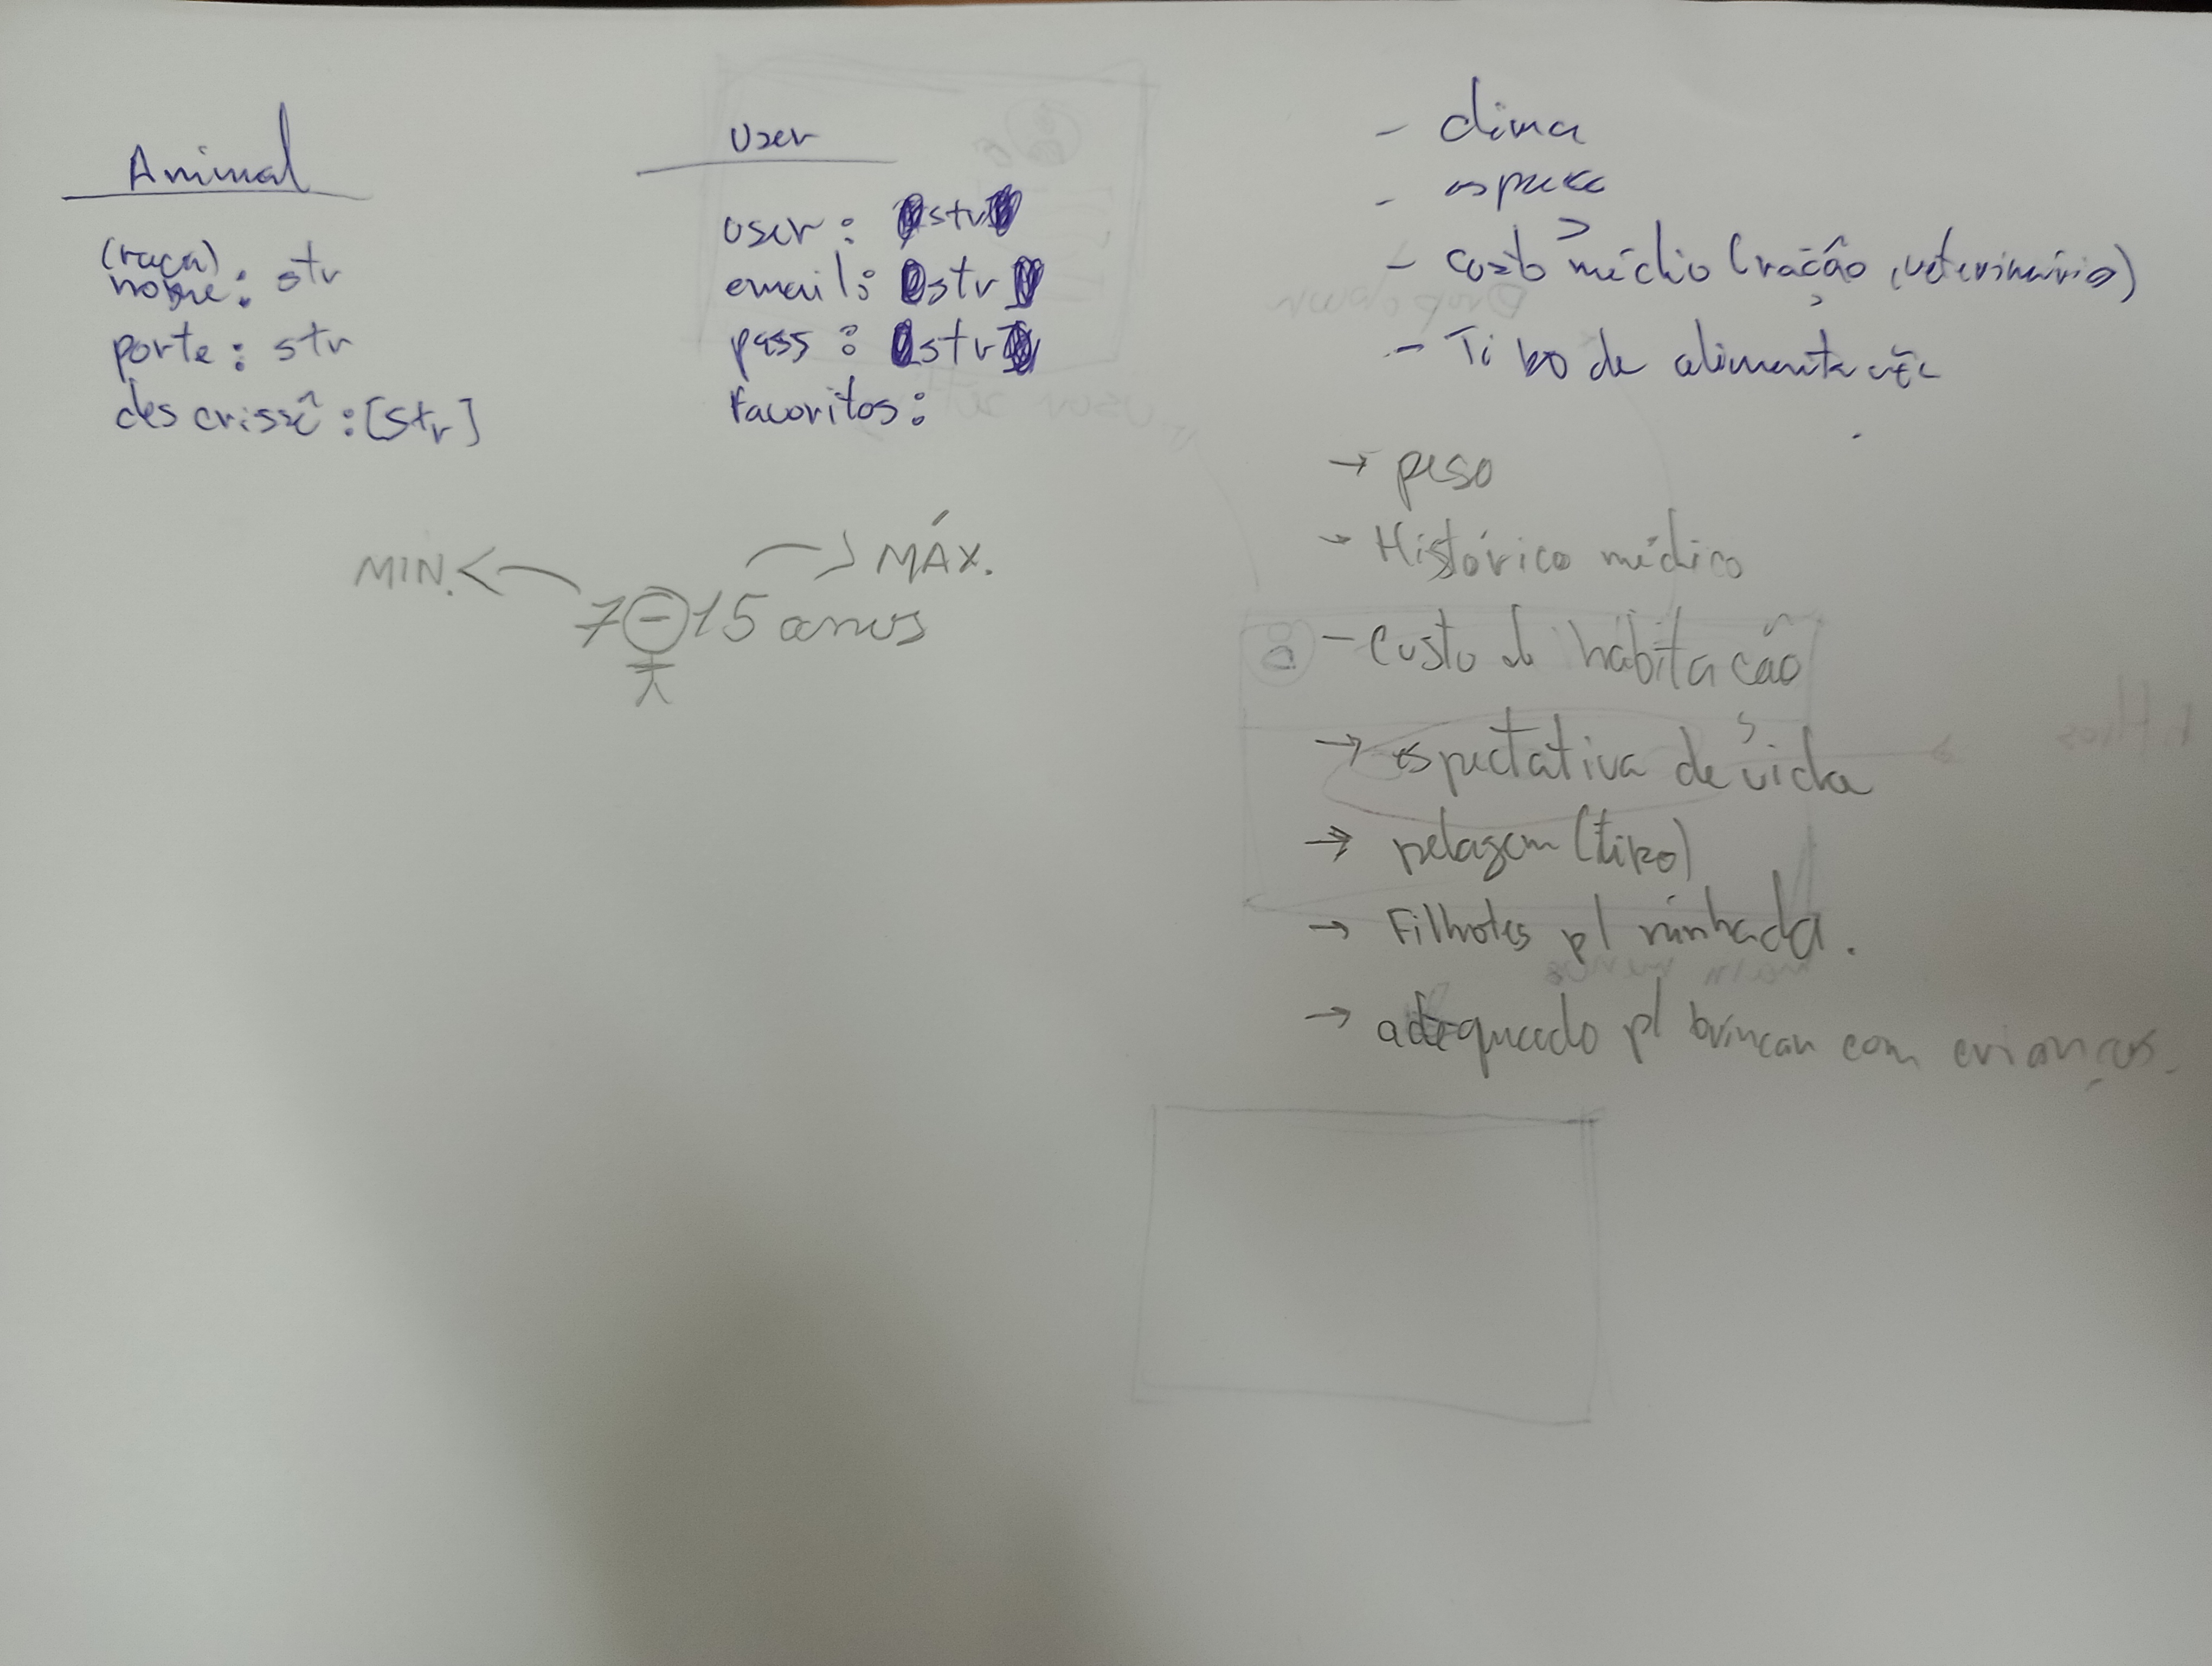 Animal
(raça)
nome: str
porte: str
descrissã: [str]
User
user: str
email: str
pass: str
Favoritos:
MIN. MÁX.
7-15 anos
- clima
- espaço
- custo médio (ração, veterinário)
- Tipo de alimentação
→ peso
→ Histórico médico
- Custo de habitação
→ espectativa de vida
→ pelagem (tipo)
→ Filhotes p/ ninhada.
→ adequado p/ brincar com crianças.